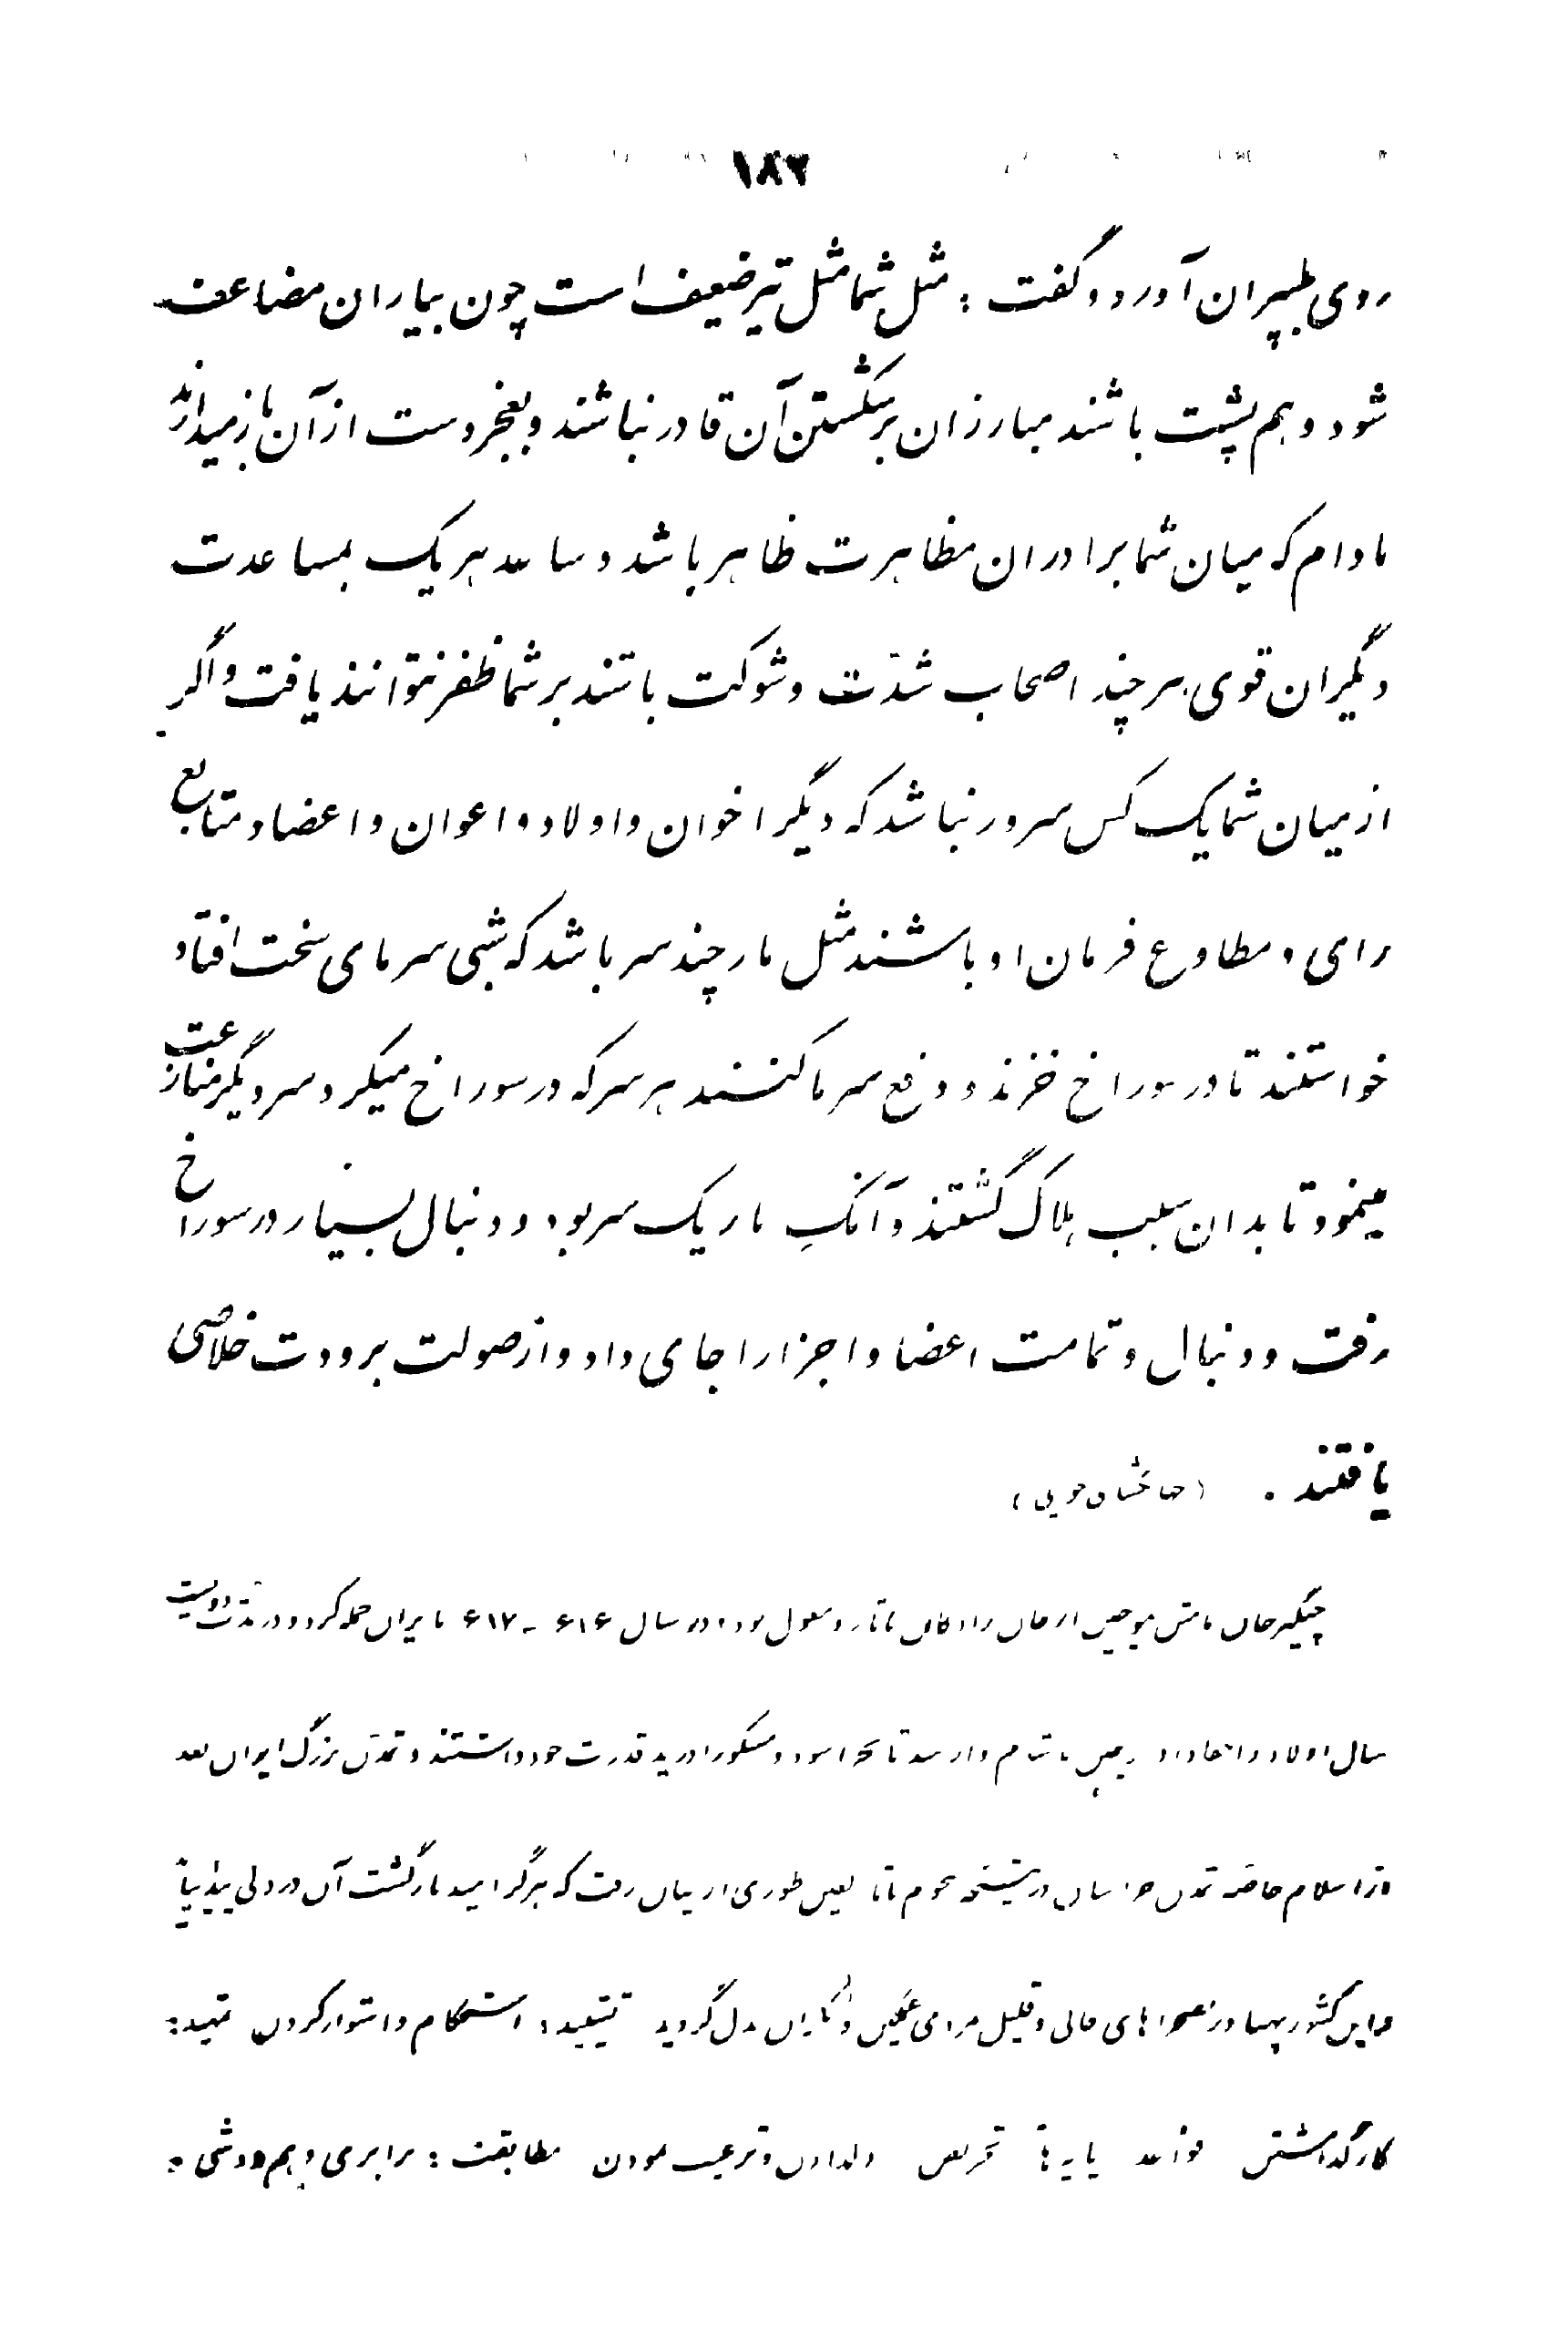 ۱۸۲
روی بپسران آورد و گفت : مثل شما مثل تیر ضعیف است چون بیاران مضاعف
شود و هم پشت باشند مبارزان بر شکستن آن قادر نباشند و بعجز دست از آن باز میدارند
مادام که میان شما برادران مظاهرت ظاهر باشد و ساعد هر یک بمساعدت
دیگران قوی هر چند اصحاب شدّت و شوکت باشند بر شما ظفر نتوانند یافت و اگر
از میان شما یک کس سرور نباشد که دیگر اخوان و اولاد و اعوان و اعضاد متابع
رای و مطاوع فرمان او باشند مثل مار چند سر باشد که شبی سرمای سخت افتاد
خواستند تا در سوراخ خزند و دفع سرما کنند هر سر که در سوراخ میکرد سر دیگر منازعت
مینمود تا بدان سبب هلاک گشتند و آنک مار یک سر بود و دنبال بسیار در سوراخ
رفت و دنبال و تمامت اعضا و اجزا را جای داد و از صولت برودت خلاصی
یافتند . (جهانگشای جوینی)
چنگیزخان نامش تموچین از خان زادگان تاتار و مغول بود در سال ۶۱۶ - ۶۱۷ بایران حمله کرد و در مدّت دویست
سال اولاد و احفاد او از چین تا شام و از هند تا بحر اسود و مسکو را در ید قدرت خود داشتند و تمدّن بزرگ ایران بعد
از اسلام خاصّه تمدّن خراسان در نتیجه هجوم تاتار بطوری از میان رفت که هرگز امید بازگشت آن در دلی
و این کشور پهناور بصحراهای خالی و قلیل مردمی غمگین مبدّل گردید تشیید : استحکام و استوار کردن تمهید :
کار گذاشتن قواعد پایه ها تحریض و ترغیب نمودن مطابقت : برابری و هم دوشی .